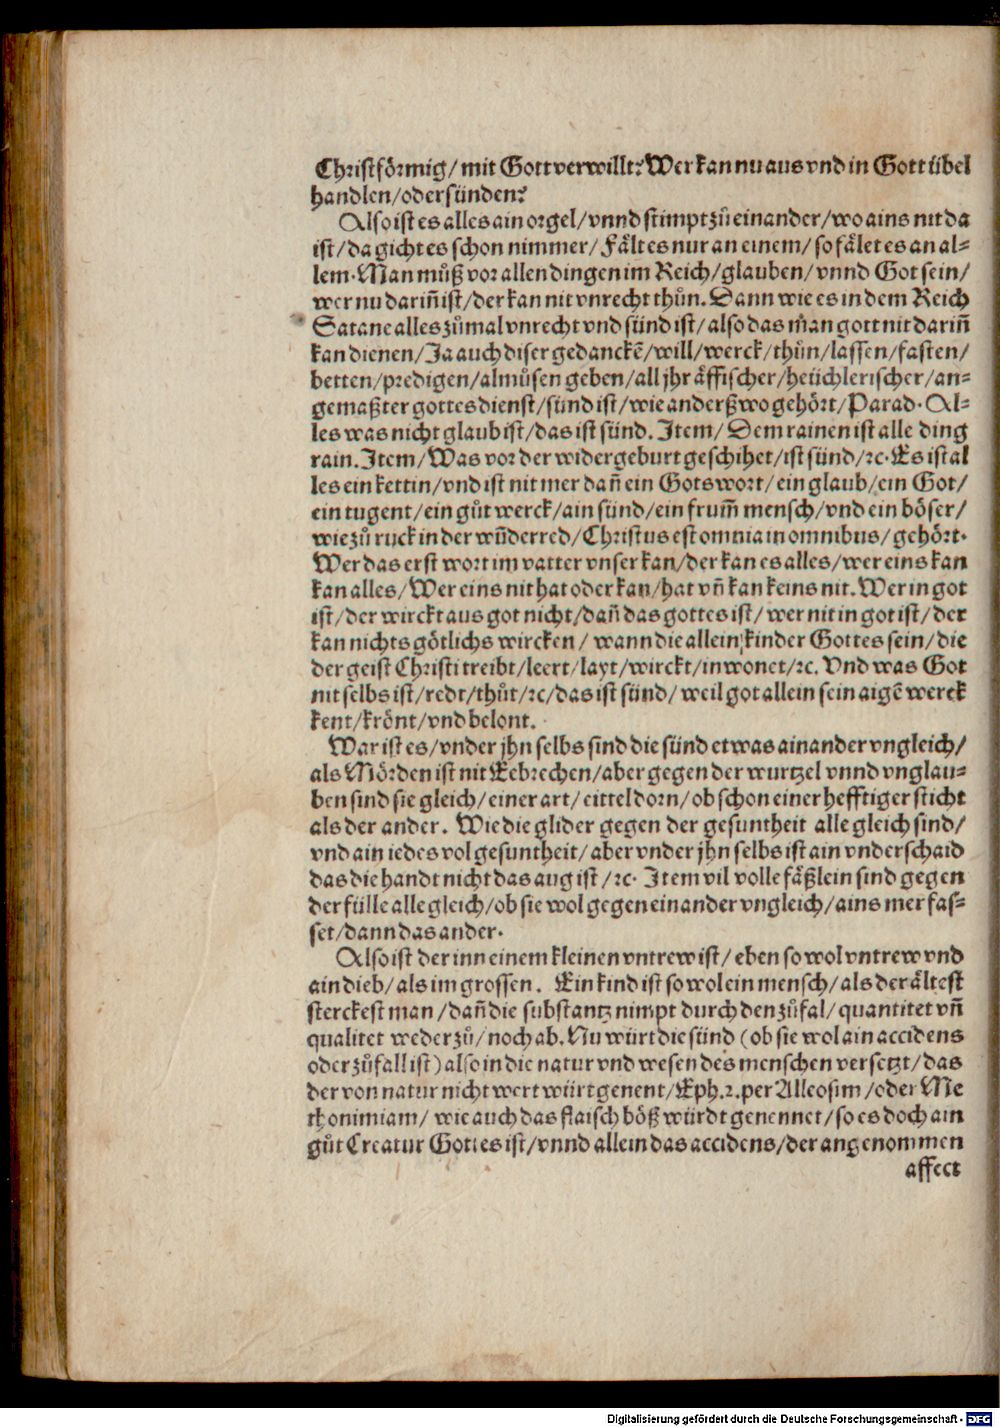 Christförmig/ mit Gott verwillt? Wer kan nu aus vnd in Gott übel
handlen/ oder sünden?
Also ist es alles ain orgel/ vnnd stimpt zů einander/ wo ains nit da
ist/ da gicht es schon nimmer/ Fält es nur an einem/ so fälet es an al=
lem. Man můß vor allen dingen im Reich/ glauben/ vnnd Got sein/
wer nu dariñ ist/ der kan nit vnrecht thůn. Dann wie es in dem Reich
Satane alles zůmal vnrecht vnd sünd ist/ also das man gott nit dariñ
kan dienen/ Ja auch diser gedanckẽ/ will/ werck/ thůn/ lassen/ fasten/
betten/ predigen/ almůsen geben/ all jhr äffischer/ heüchlerischer/ an=
gemaßter gottesdienst/ sünd ist/ wie anderßwo gehört/ Parad. Al=
les was nicht glaub ist/ das ist sünd. Item/ Dem rainen ist alle ding
rain. Item/ Was vor der widergeburt geschihet/ ist sünd/ ꝛc. Es ist al
les ein kettin/ vnd ist nit mer dañ ein Gotswort/ ein glaub/ ein Got/
ein tugent/ ein gůt werck/ ain sünd/ ein frum̃ mensch/ vnd ein böser/
wie zů ruck in der wũderred/ Christus est omnia in omnibus/ gehört.
Wer das erst wort im vatter vnser kan/ der kan es alles/ wer eins kan
kan alles/ Wer eins nit hat oder kan/ hat vñ kan keins nit. Wer in got
ist/ der wirckt aus got nicht/ dañ das gottes ist/ wer nit in got ist/ der
kan nichts götlichs wircken/ wann die allein kinder Gottes sein/ die
der geist Christi treibt/ leert/ layt/ wirckt/ inwonet/ ꝛc. Vnd was Got
nit selbs ist/ redt/ thůt/ ꝛc/ das ist sünd/ weil got allein sein aigẽ werck
kent/ krönt/ vnd belont.
War ist es/ vnder jhn selbs sind die sünd etwas ainander vngleich/
als Mörden ist nit Eebrechen/ aber gegen der wurtzel vnnd vnglau=
ben sind sie gleich/ einer art/ eittel dorn/ ob schon einer hefftiger sticht
als der ander. Wie die glider gegen der gesuntheit alle gleich sind/
vnd ain iedes vol gesuntheit/ aber vnder jhn selbs ist ain vnderschaid
das die handt nicht das aug ist/ ꝛc. Item vil volle fäßlein sind gegen
der fülle alle gleich/ ob sie wol gegen einander vngleich/ ains mer fas=
set/ dann das ander.
Also ist der inn einem kleinen vntrew ist/ eben so wol vntrew vnd
ain dieb/ als im grossen. Ein kind ist so wol ein mensch/ als der ältest
sterckest man/ dañ die substantz nimpt durch den zůfal/ quantitet vñ
qualitet weder zů/ noch ab. Nu würt die sünd (ob sie wol ain accidens
oder zůfall ist) also in die natur vnd wesen des menschen versetzt/ das
der von natur nicht wert würt genent/ Eph. 2. per Alleosim/ oder Me
thonimiam/ wie auch das flaisch böß würdt genennet/ so es doch ain
gůt Creatur Gottes ist/ vnnd allein das accidens/ der angenommen
affect
Digitalisierung gefördert durch die Deutsche Forschungsgemeinschaft - DFG